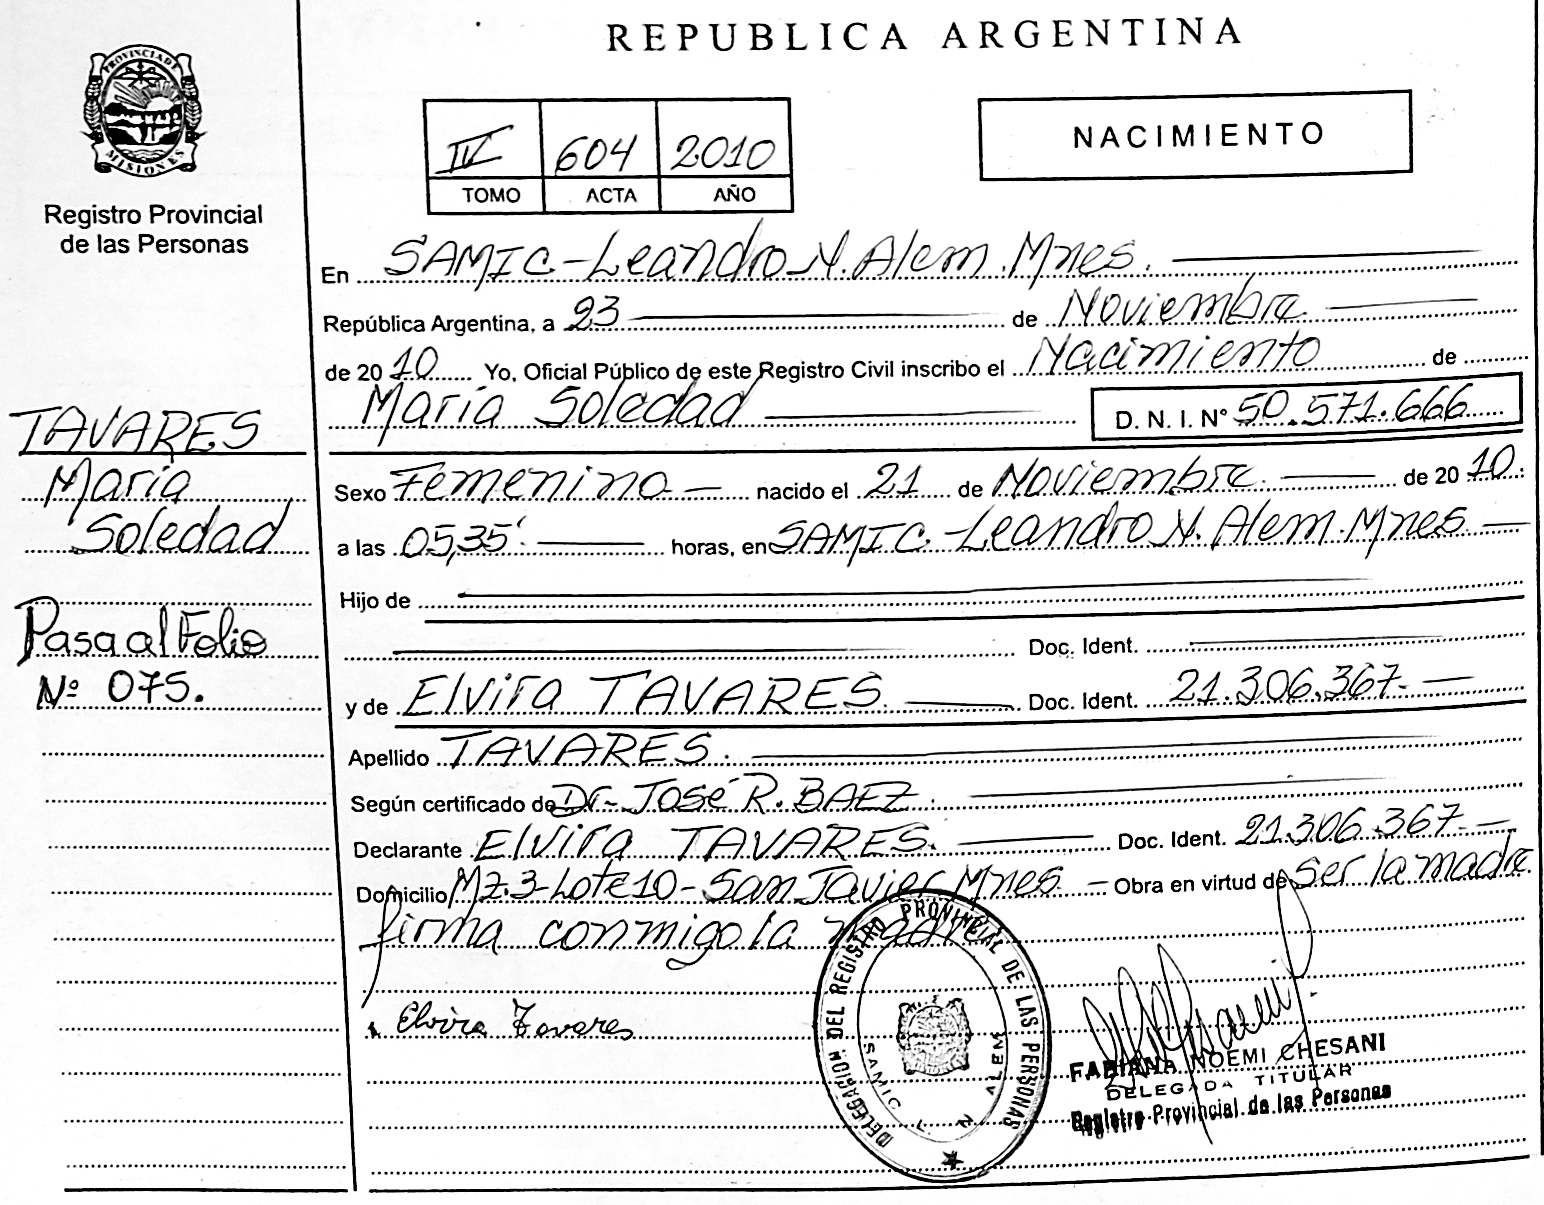 REPUBLICA ARGENTINA
PROVINCIA DE
MISIONES
Registro Provincial
de las Personas
IV 604 2010
TOMO ACTA AÑO
NACIMIENTO
En SAMIC-Leandro N. Alem. Mnes.
República Argentina, a 23 de Noviembre
de 2010 Yo, Oficial Público de este Registro Civil inscribo el Nacimiento de
María Soledad D. N. I. N° 50.571.666
TAVARES
María
Soledad
Sexo Femenino nacido el 21 de Noviembre de 2010
a las 05,35' horas, en SAMIC-Leandro N. Alem. Mnes
Hijo de
Doc. Ident.
Pasa al Folio
Nº 075.
y de Elvira TAVARES Doc. Ident. 21.306.367.-
Apellido TAVARES.
Según certificado de Dr. José R. BAEZ.
Declarante Elvira TAVARES. Doc. Ident. 21.306.367.-
Domicilio Mz.3-Lote 10-San Javier Mnes - Obra en virtud de ser la madre
firma conmigo la madre
Elvira Tavares
DELEGACION DEL REGISTRO PROVINCIAL DE LAS PERSONAS
SAMIC L. N ALEM
FABIANA NOEMI CHESANI
DELEGADA TITULAR
Registro Provincial de las Personas